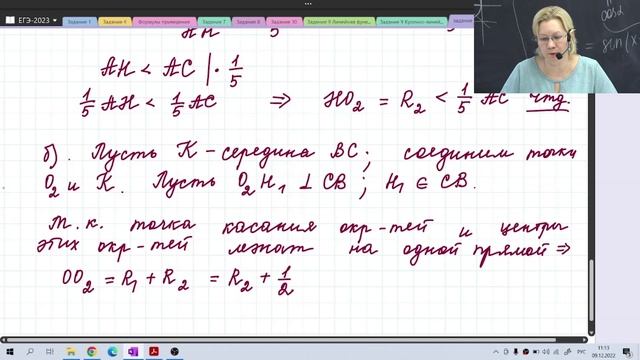 ЕГЭ-2023
Задание 1
Задание 4
Формулы приведения
Задание 7
Задание 8
Задание 10
Задание 9 Линейная функ...
AH 5
AH < AC | · 1/5
1/5 AH < 1/5 AC ⇒ HO₂ = R₂ < 1/5 AC Чтд.
б). Пусть K – середина BC; соединим точки
O₂ и K. Пусть O₂H₁ ⊥ CB; H₁ ∈ CB.
Т.к. точка касания окр-тей и центры
этих окр-тей лежат на одной прямой ⇒
OO₂ = R₁ + R₂ = R₂ + 1/2
РУС
11:13
09.12.2022